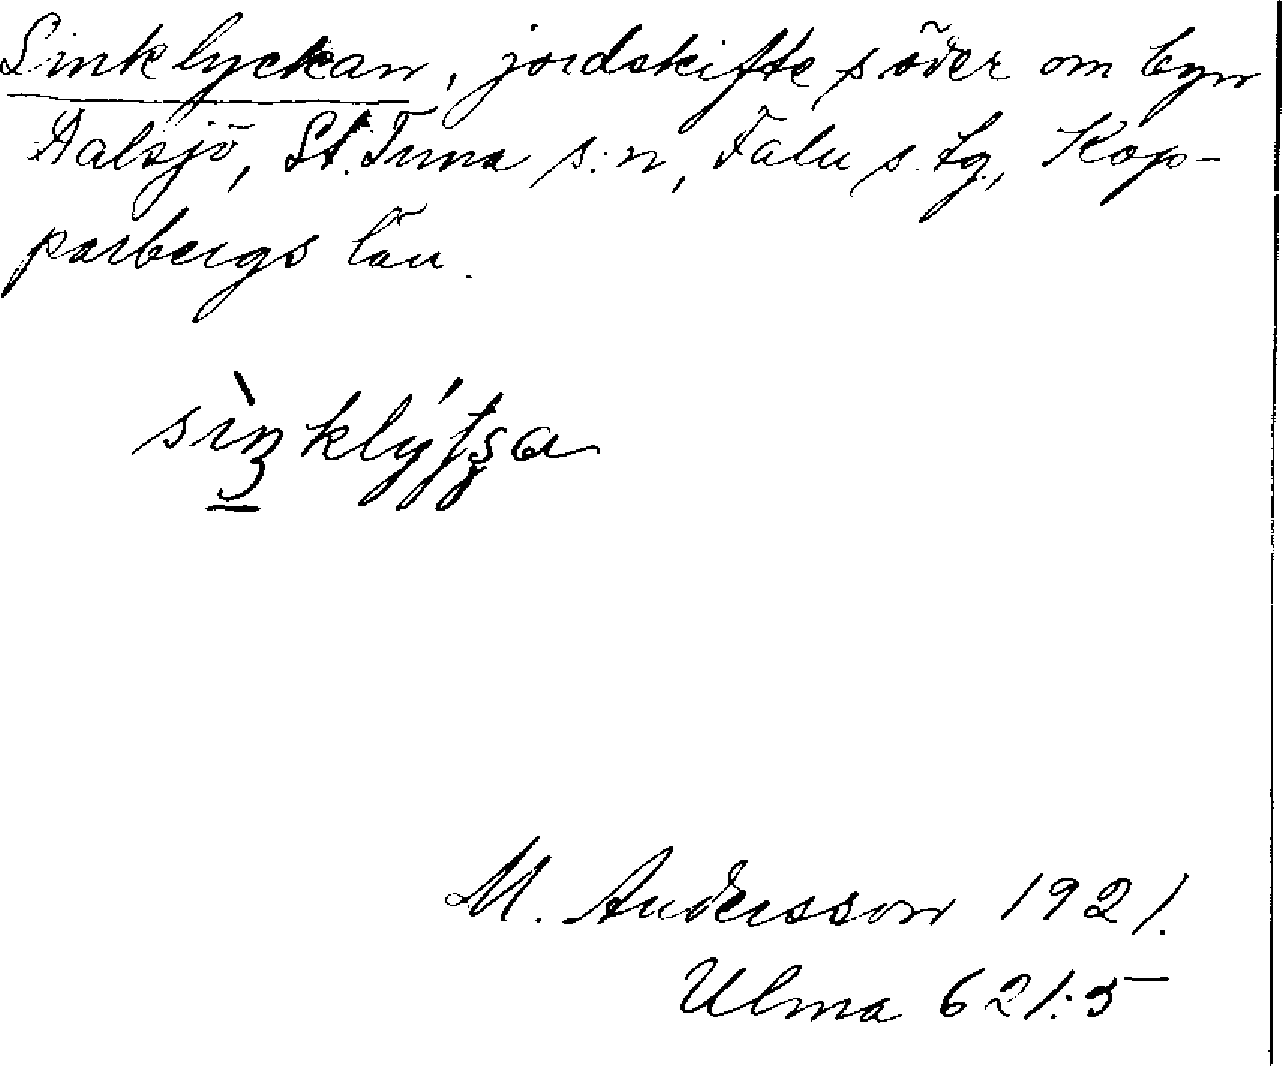 Sinklyckan, jordskifte söder om byn
Dalsjö, St. Tuna s:n, Falu s. tg., Kop-
parbergs län.
M. Andersson 1921.
Ulma 621:5